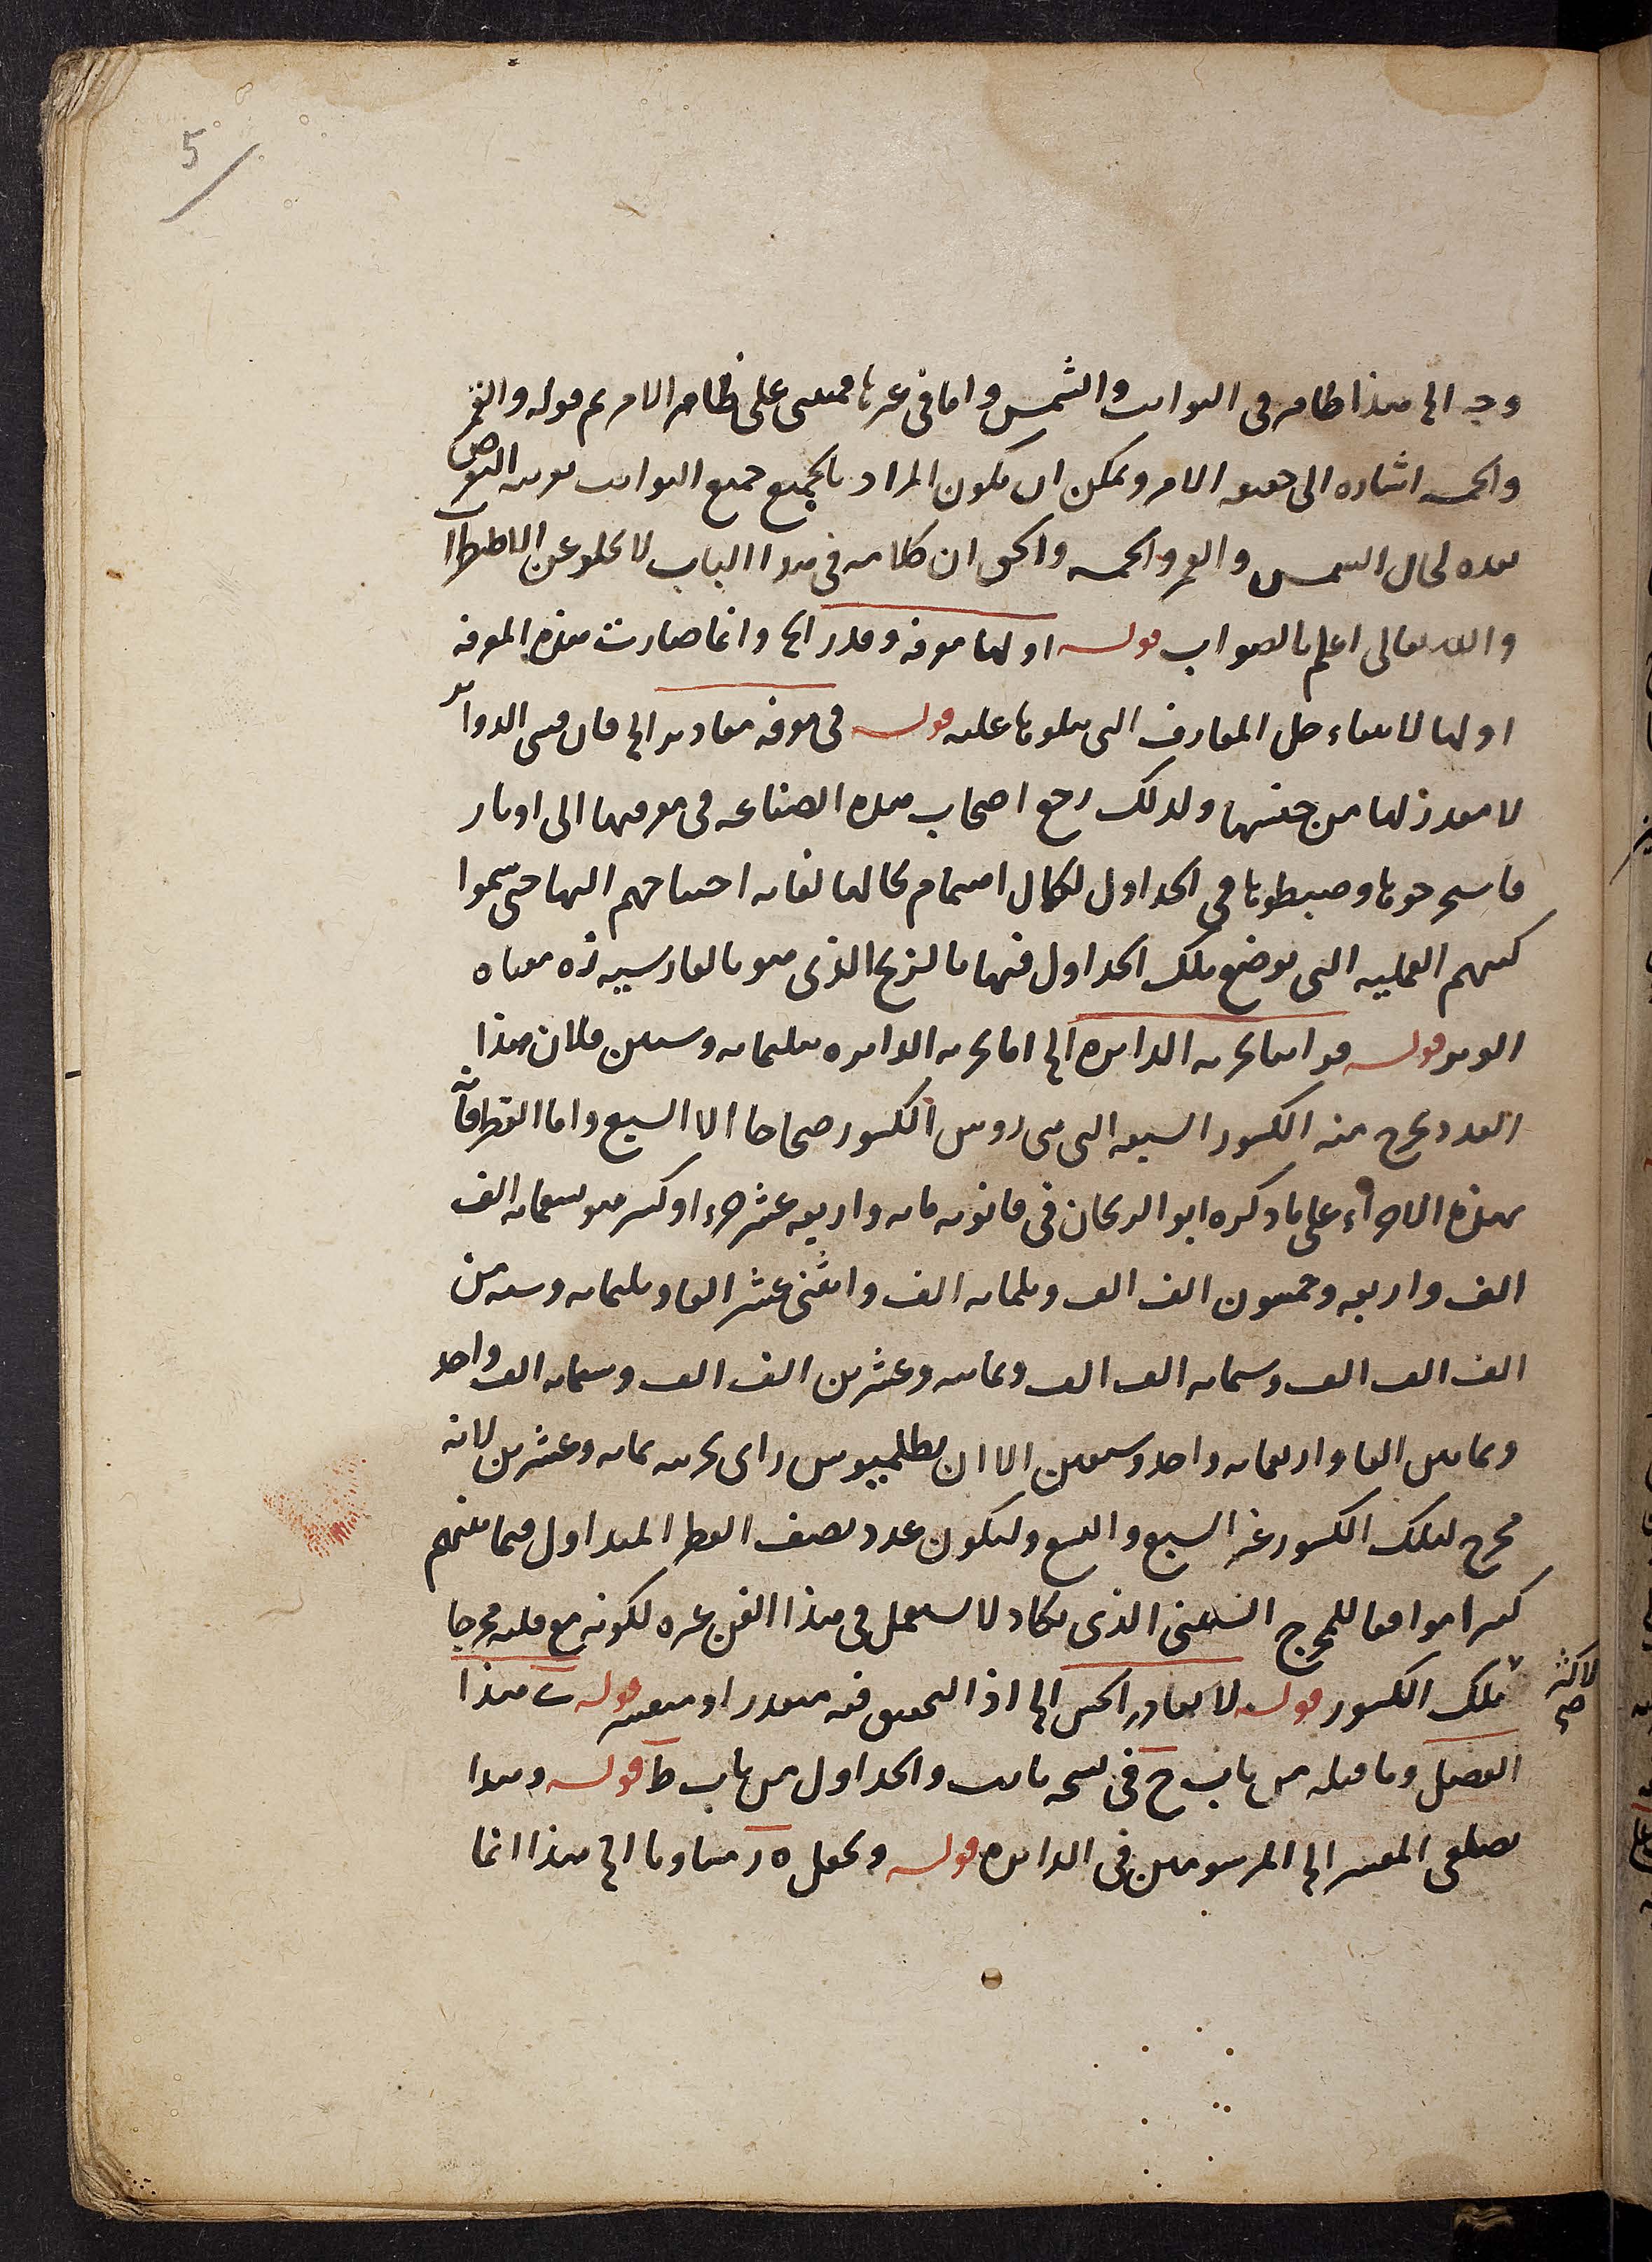 5
وجه الخ هذا ظاهر فى الثوابت والشمس واما فى غيرها فمبنى على ظاهر الامر ثم قوله والقمر
والخمسة اشارة الى حقيقة الامر ويمكن ان يكون المراد بالجميع جميع الثوابت بقرينة التعرض
بعده لحال الشمس والقمر والخمسة والحق ان كلامه فى هذا الباب لا يخلو عن الاضطراب
والله تعالى اعلم بالصواب قوله اولها معرفة وقدر الخ وانما صارت هذه المعرفة
اولها لابتناء جل المعارف التى يتلوها عليه قوله فى معرفة مقادير الخ فان قسى الدوائر
لا مقدر لها من جنسها ولذلك رجع اصحاب هذه الصناعة فى معرفتها الى اوتار
فاستخرجوها وضبطوها فى الجداول لكمال اهتمام بحالها لغاية احتياجهم اليها حتى سموا
كتبهم العملية التى توضع تلك الجداول فيها بالزيج الذى هو بالفارسية زه معناه
الوتر قوله هو انما تجزية الدايرة الخ اما تجزية الدايرة بثلثمائة وستين فلان هذا
العدد يخرج منه الكسور السبعة التى هى رؤس الكسور صحاحا الا السبع واما القطر فانه
بهذه الاجزاء على ما ذكره ابو الريحان فى قانونه مائة واربعة عشر جزءا وكسر هو تسعمائة الف
الف واربعة وخمسون الف الف وثلثمائة الف واثنى عشر الفا وثلثمائة وستة من
الف الف الف وستمائة الف الف وثمانية وعشرين الف الف وستمائة الف واحد
وثمانين الفا واربعمائة واحد وستين الا ان بطلميوس راى تجزيته بمائة وعشرين لانه
مخرج لتلك الكسور غير السبع والتسع وليكون عدد نصف القطر المتداول فيما بينهم
كثيرا موافقا للمخرج الستينى الذى يكاد لا يستعمل فى هذا الفن غيره لكونه مع قلته مخرجا
لاكثر صح
تلك الكسور قوله لا يغادر الحس الخ اذ التحقيق فيه متعذر او متعسر قوله ى هذا
الفصل وما قبله من باب ح فى نسخة ثابت والجداول من باب ط قوله وهذا
ضلعى المعشر الخ المرسومين فى الدايرة قوله ونجعل ه ر مساويا الخ هذا انما